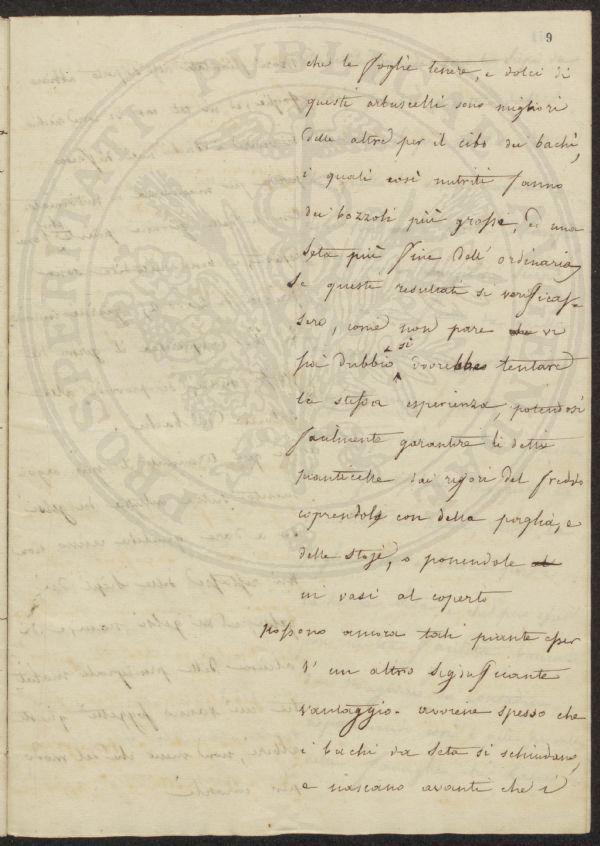 9
che le foglie tenere, e dolci di
questi arbuscelli sono migliori
delle altre per il cibo dei bachi,
i quali così nutriti fanno
dei bozzoli più grossi, ed una
seta più fine dell'ordinaria
Se questi resultati si verificas-
sero, come non pare vi
sia dubbio si dovrebbe tentare
la stessa esperienza, potendosi
facilmente garantire li detti
pianticelle dai rigori del freddo
coprendole con della paglia, e
delle stoje, o ponendole
in vasi al coperto
Possono ancora tali piante esser
d'un altro significante
vantaggio. avviene spesso che
i bachi da seta si schiudano,
e nascano avanti che i
PROSPERITATI PUBLICAE